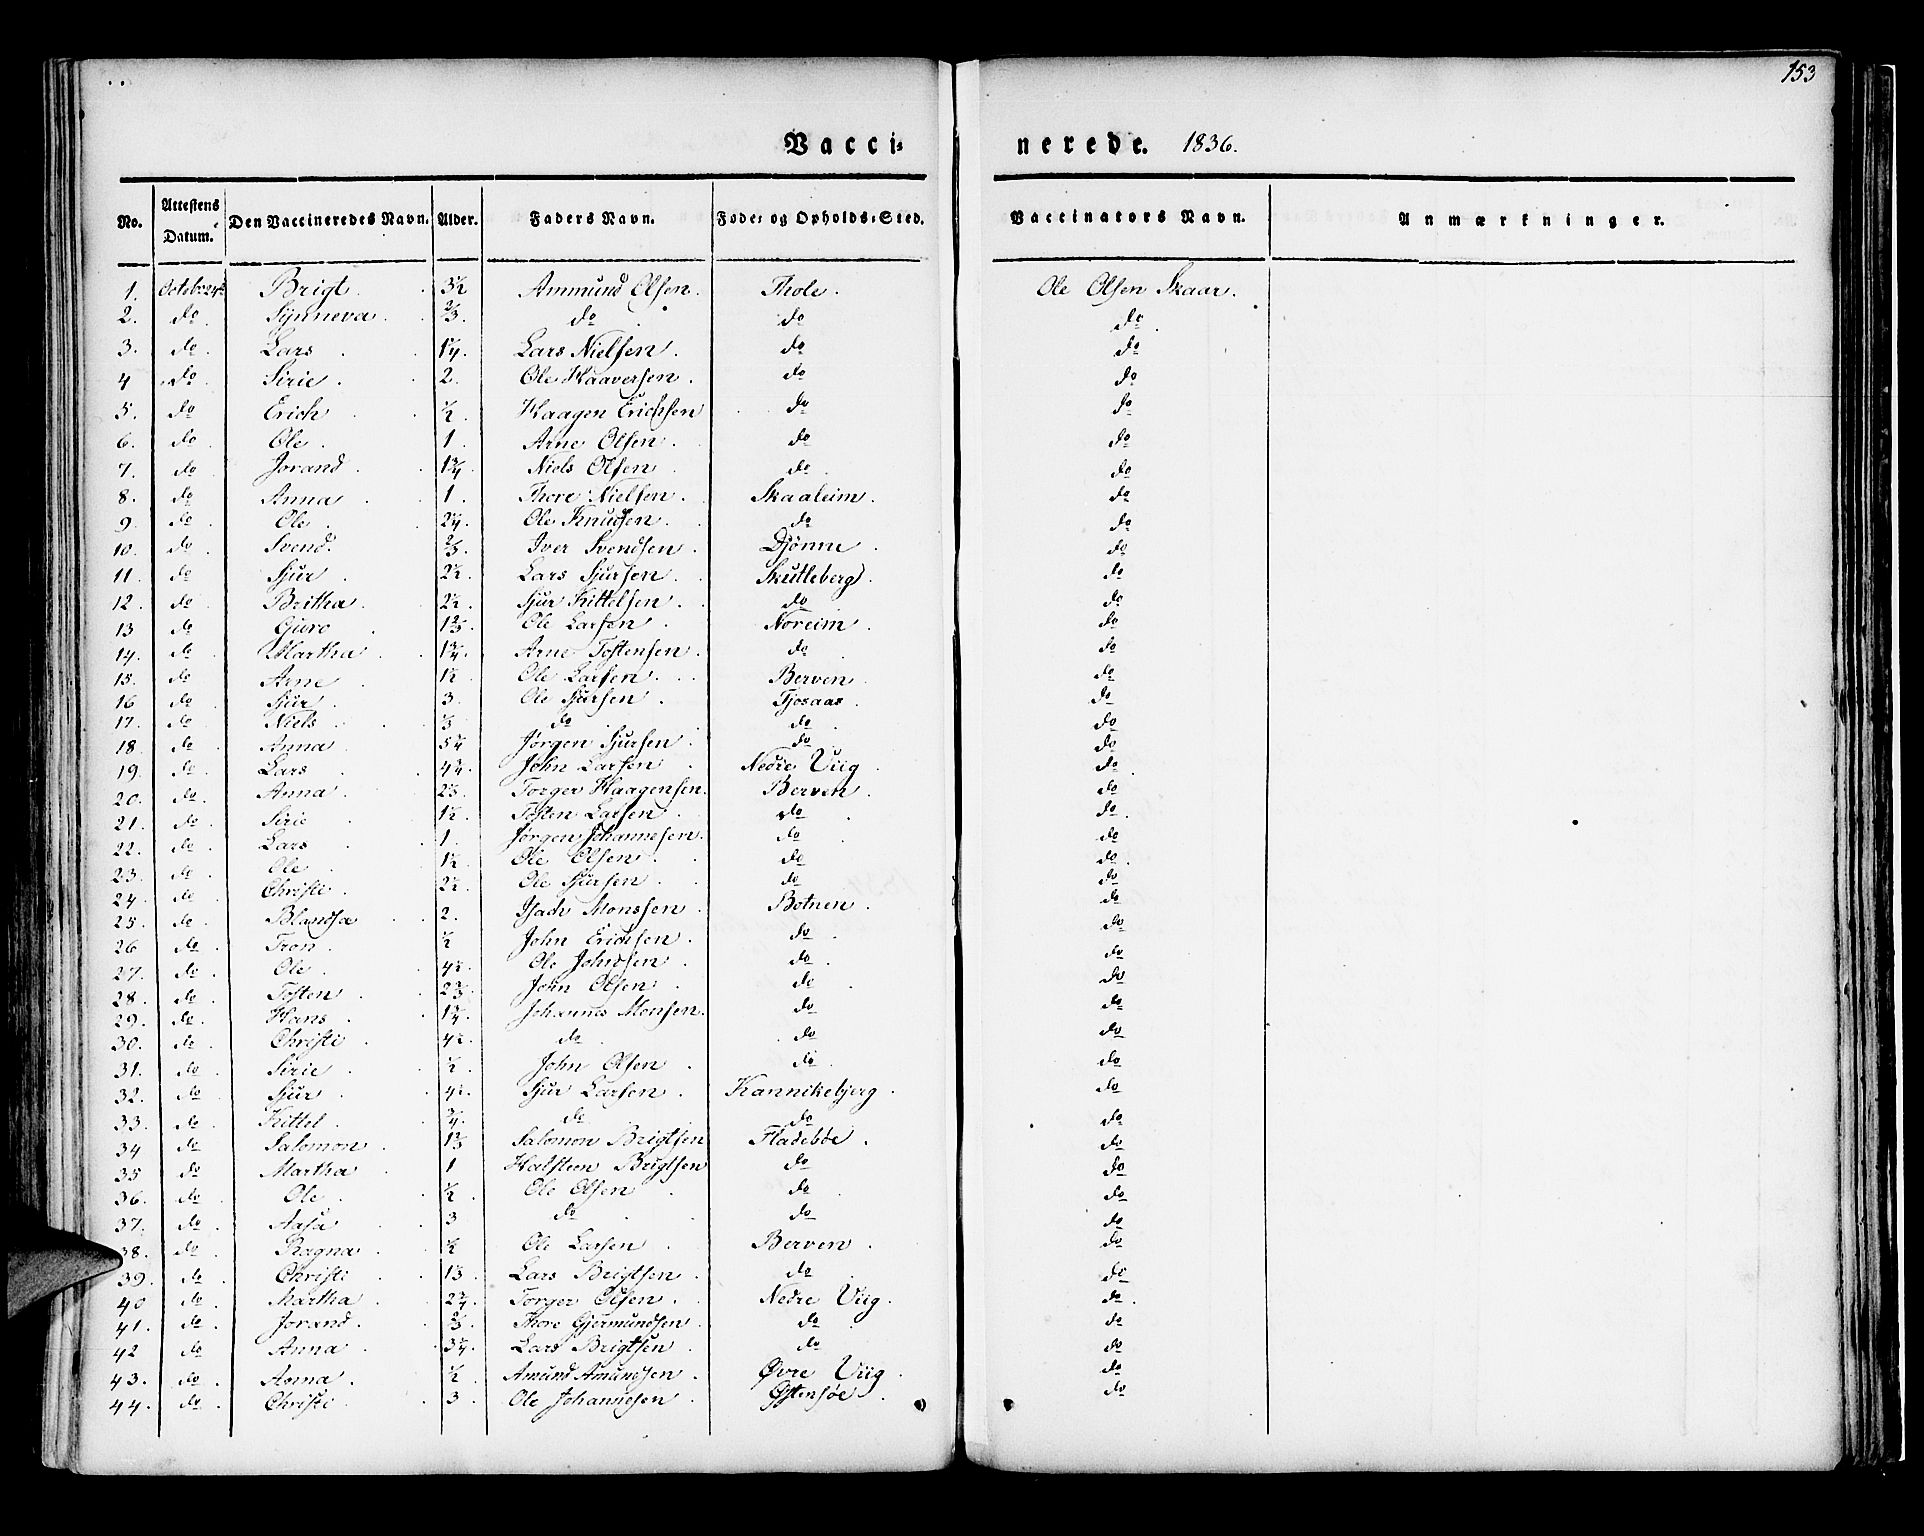 153
Vacci- nerede. 1836.
No. Attestens Datum. Den Vaccineredes Navn. Alder. Faders Navn. Føde- og Opholds-Sted. Vaccinators Navn. Anmærkninger.
1. Brigt. 3½ Ammund Olsen. Thole. Ole Olsen Skaar.
2. do. Synneva. ⅔. do. do do.
3. do. Lars. 1¼. Lars Nielsen. do do
4 do. Sirie. 2. Ole Haaversen. do do
5. do Erich. ½. Haagen Erichsen do do
6. do. Ole. 1. Arne Olsen. do do
7. do Jorand. 1¾. Niels Olsen. do. do
8. do Anna. 1. Thore Nielsen. Skaaleim. do
9. do Ole. 2¼. Ole Knudsen. do do
10. do. Svend. ⅖. Iver Svendsen. Djønne. do
11. do. Sjur. 2½. Lars Sjursen. Skutleberg. do
12. do Britha. 2½. Sjur Kittelsen. do do
13 do Guro. 1⅔. Ole Larsen. Noreim. do
14. do Martha. 1¾. Arne Tostensen. do. do
15. do Arne. 1½ Ole Larsen. Berven. do
16 do. Sjur. 3. Ole Sjursen. Tjosaas. do
17. do. Niels. ⅓ do. do. do
18. do Anna. 5¼ Jørgen Sjursen. do do
19. do. Lars. 4¾. John Larsen. Nedre Viig. do.
20. do. Anna. 2⅔. Torger Haagensen. Berven. do
21. do. Sirie. 1½. Tosten Larsen. do. do.
22. do. Lars. 1. Jørgen Johannesen. do. do
23. do. Ole. 1½. Ole Olsen. do do.
24 do. Christi. 2½. Ole Sjursen. do do
25. do. Blandsa. 2. Isach Monssen. Botnen. do
26 do. Tron. ½ John Erichsen. do. do
27. do. Ole. 4½. Ole Johnsen. do. do
28. do. Tosten. 2⅔. John Olsen. do. do
29. do. Hans. 1¾. Johannes Monsen. do do
30. do. Christi. 4½. do. do do
31. do. Sirie. ½. John Olsen. do. do
32. do. Sjur. 4½. Sjur Larsen. Kannikebjerg. do
33. do. Kittel. ¾. do do do
34 do. Salomon. 1⅔ Salomon Brigtsen Fladebøe. do
35 do Martha. 1 Halsteen Brigtsen do do
36. do. Ole. ½. Ole Olsen. do do
37. do. Aasa. 3 do. do do
38. do. Ragna. ½ Ole Larsen. Berven. do
39. do. Christi. 1⅓. Lars Brigtsen. do. do
40 do. Martha. 2¾. Torger Olsen. Nedre Viig. do.
41. do. Jorand. ⅔. Thore Gjermundsen. do. do
42 do Anna. 3¼. Lars Brigtsen. do do
43. do. Anna. ½. Amund Amundsen. Øvre Viig. do
44. do. Christi. 3. Ole Johannesen. Østensøe. do